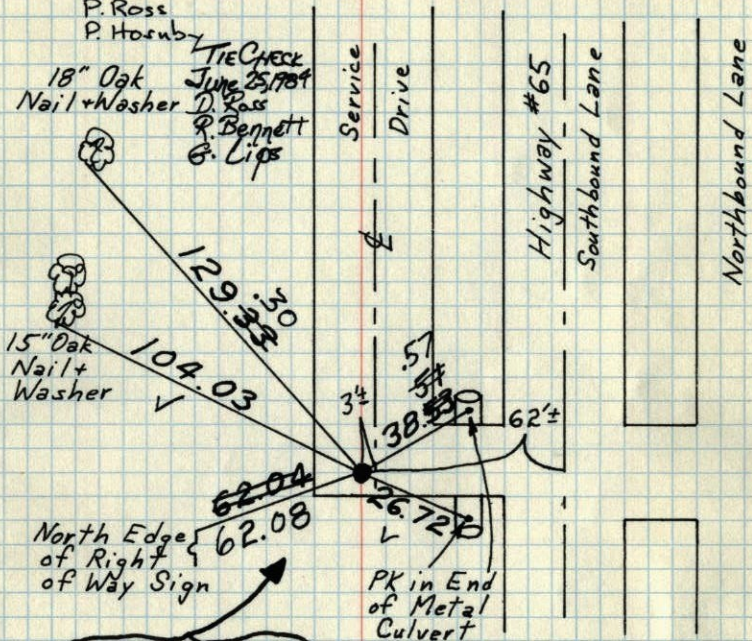 P. Ross
P. Hornby
TIE CHECK
June 25, 1984
D. Ross
R. Bennett
G. Lips
18" Oak
Nail + Washer
15" Oak
Nail +
Washer
129.33
.30
104.03
✓
Service
Drive
℄
Highway #65
Southbound Lane
Northbound Lane
3'±
.57
.54
38.53
62'±
62.04
62.08
26.72
✓
North Edge
of Right
of Way Sign
PK in End
of Metal
Culvert